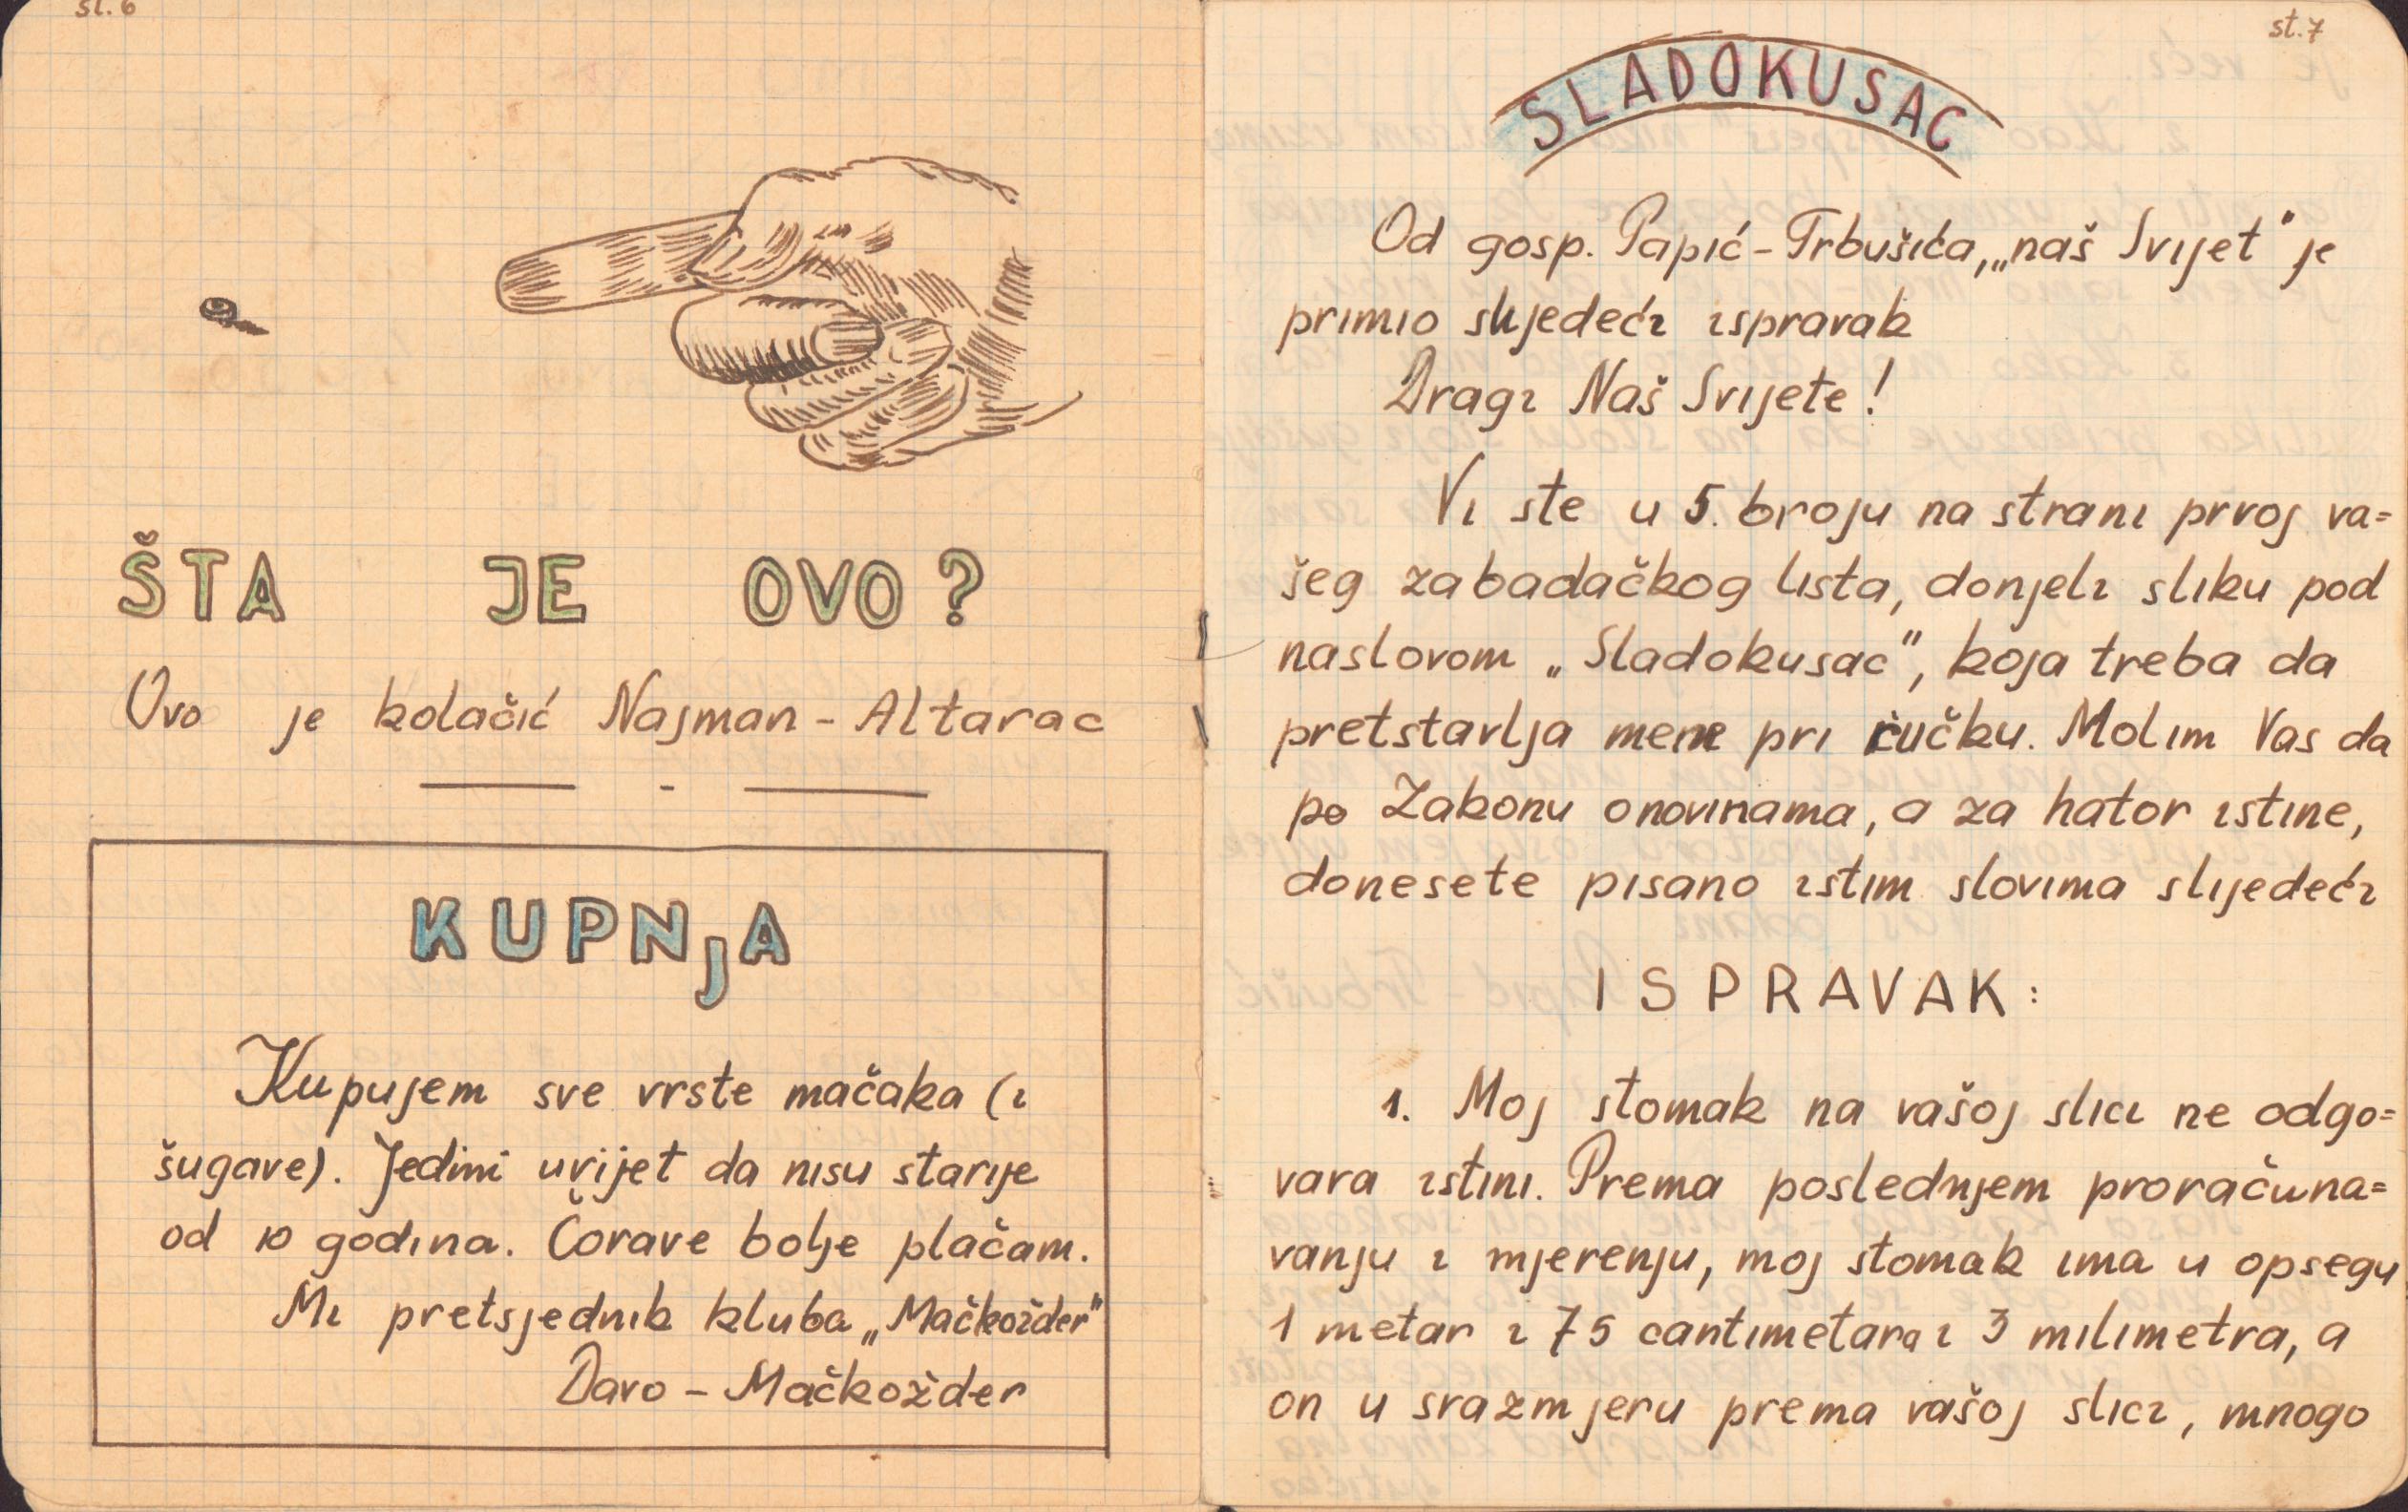 st. 6
ŠTA JE OVO?
Ovo je kolačić Najman - Altarac
KUPNjA
Kupujem sve vrste mačaka (i
šugave). Jedini uvijet da nisu starije
od 10 godina. Ćorave bolje plačam.
Mi pretsjednik kluba „Mačkožder"
Davo - Mačkožder
st. 7
SLADOKUSAC
Od gosp. Papić - Trbušića, „naš Svijet" je
primio slijedeći ispravak
Dragi Naš Svijete!
Vi ste u 5. broju na strani prvoj va=
šeg zabadačkog lista, donjeli sliku pod
naslovom „Sladokusac", koja treba da
pretstavlja mene pri ručku. Molim Vas da
po Zakonu o novinama, a za hator istine,
donesete pisano istim slovima slijedeći
ISPRAVAK:
1. Moj stomak na vašoj slici ne odgo=
vara istini. Prema poslednjem proračuna=
vanju i mjerenju, moj stomak ima u opsegu
1 metar i 75 cantimetara i 3 milimetra, a
on u srazmjeru prema vašoj slici, mnogo